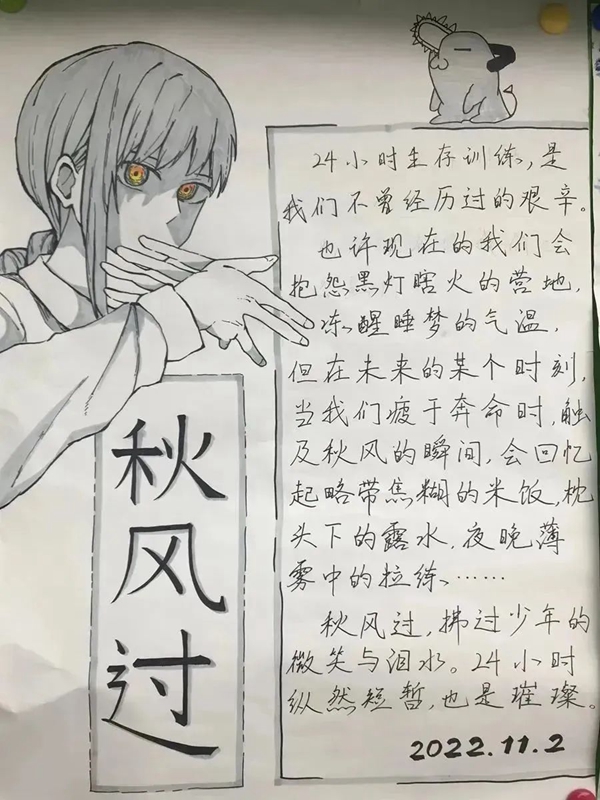 秋风过
24小时生存训练，是
我们不曾经历过的艰辛。
也许现在的我们会
抱怨黑灯瞎火的营地，
冻醒睡梦的气温，
但在未来的某个时刻，
当我们疲于奔命时，触
及秋风的瞬间，会回忆
起略带焦糊的米饭，枕
头下的露水，夜晚薄
雾中的拉练……
秋风过，拂过少年的
微笑与泪水。24小时
纵然短暂，也是璀璨。
2022.11.2